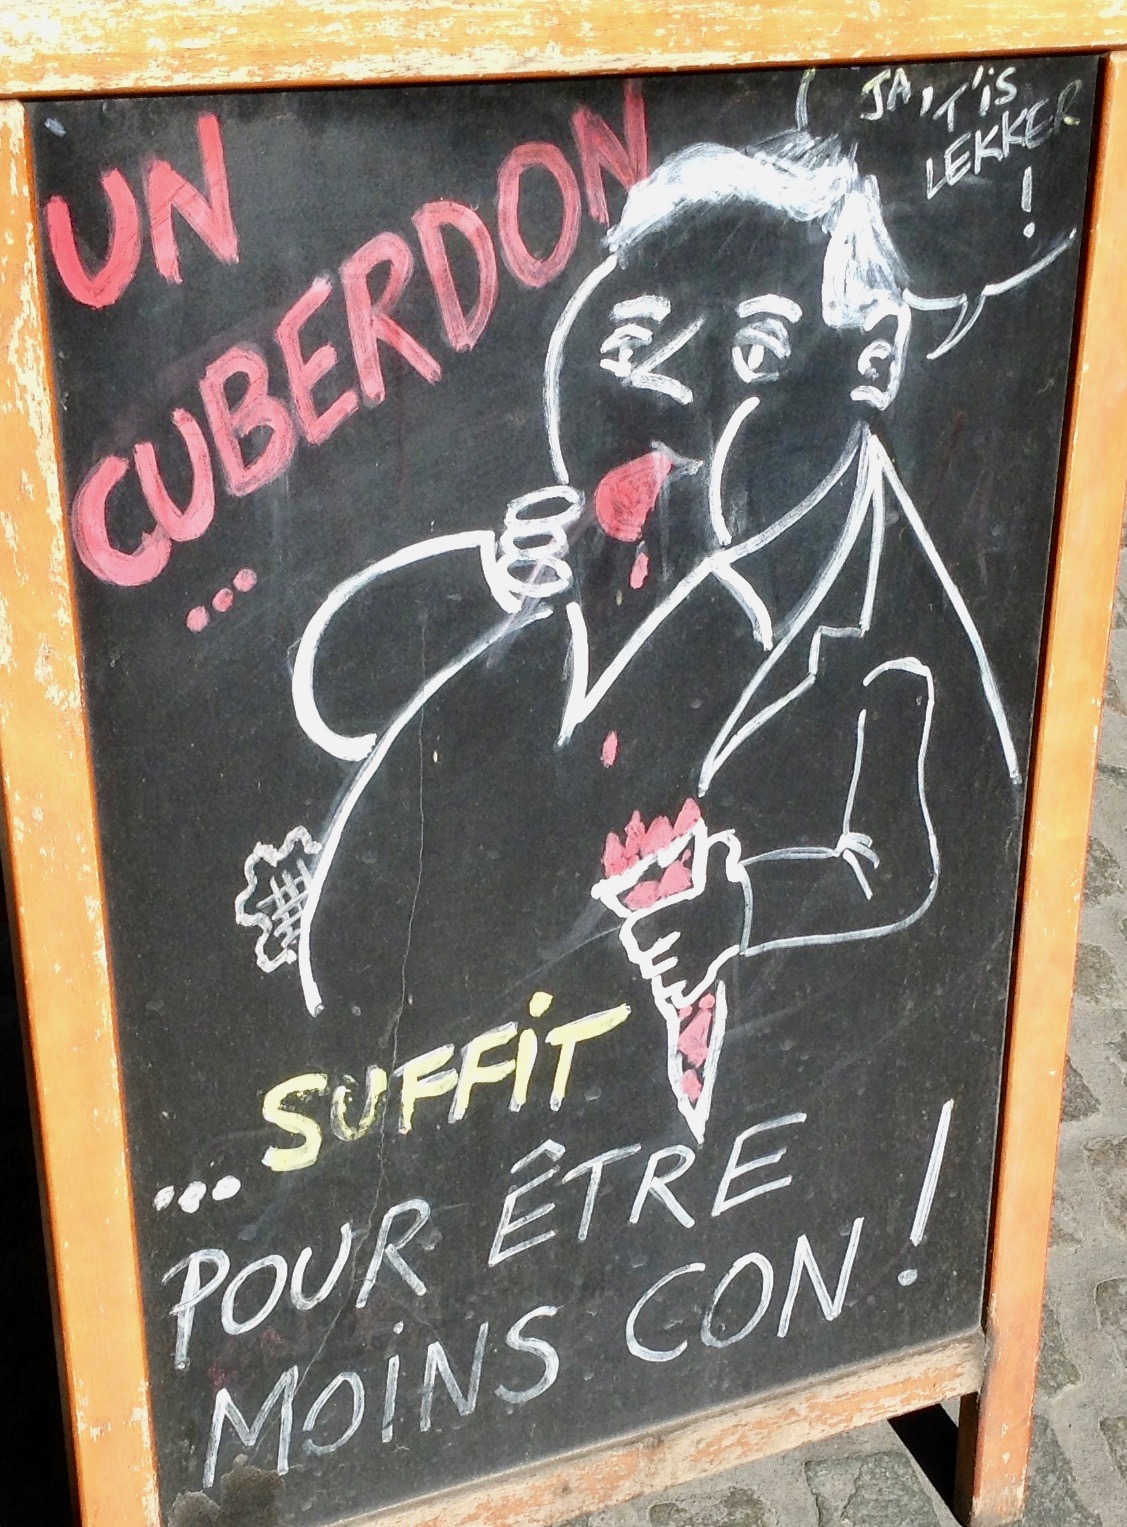 UN
CUBERDON
...
JA, T'iS
LEKKER
!
... SUFFiT
POUR ÊTRE
MOiNS CON !